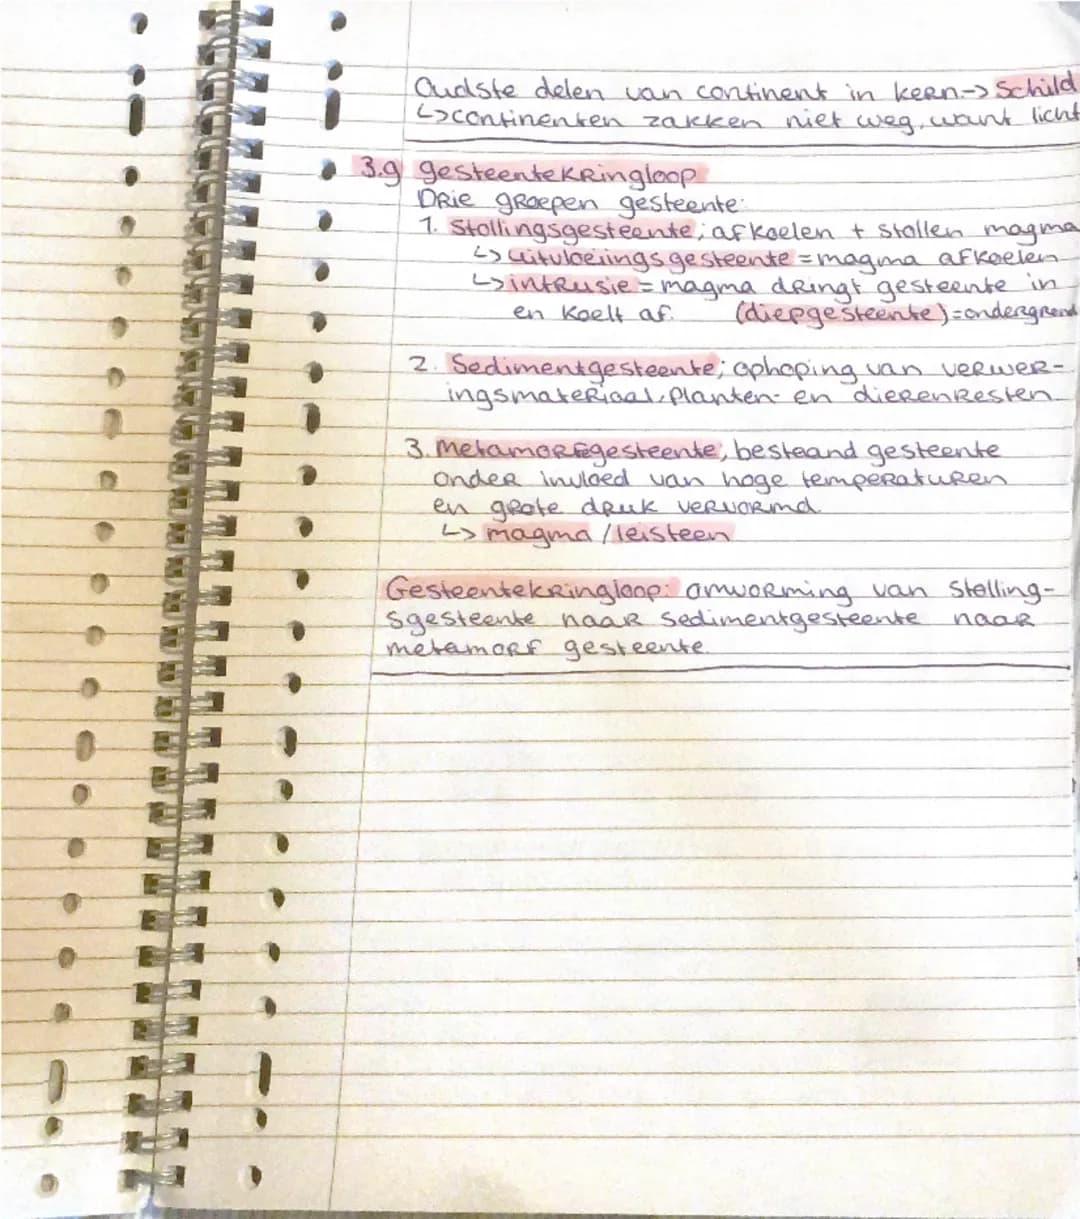 Oudste delen van continent in kern -> Schild
↳ continenten zakken niet weg, want licht
3.9 gesteentekringloop
Drie groepen gesteente:
1. Stollingsgesteente; afkoelen + stollen magma
↳ uitvloeiingsgesteente = magma afkoelen
↳ intrusie = magma dringt gesteente in
en koelt af. (diepgesteente) = ondergrond
2. Sedimentgesteente; ophoping van verwer-
ingsmateriaal, planten- en dierenresten
3. Metamorfgesteente; bestaand gesteente
onder invloed van hoge temperaturen
en grote druk vervormd.
↳ magma / leisteen
Gesteentekringloop: omvorming van Stolling-
sgesteente naar Sedimentgesteente naar
metamorf gesteente.